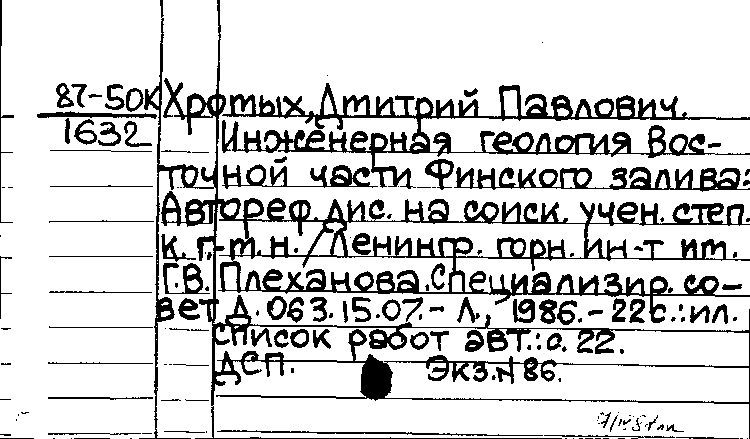 87-50К Хротых, Дмитрий Павлович.
1632 Инженерная геология Вос-
точной части Финского залива:
Автореф. дис. на соиск. учен. степ.
к. г.-т. н. / Ленингр. горн. ин-т им.
Г.В. Плеханова. Специализир. со-
вет Д. 063.15.07. - Л., 1986. - 22 с.: ил.
Список работ авт.: с. 22.
ДСП. Экз. N 86.